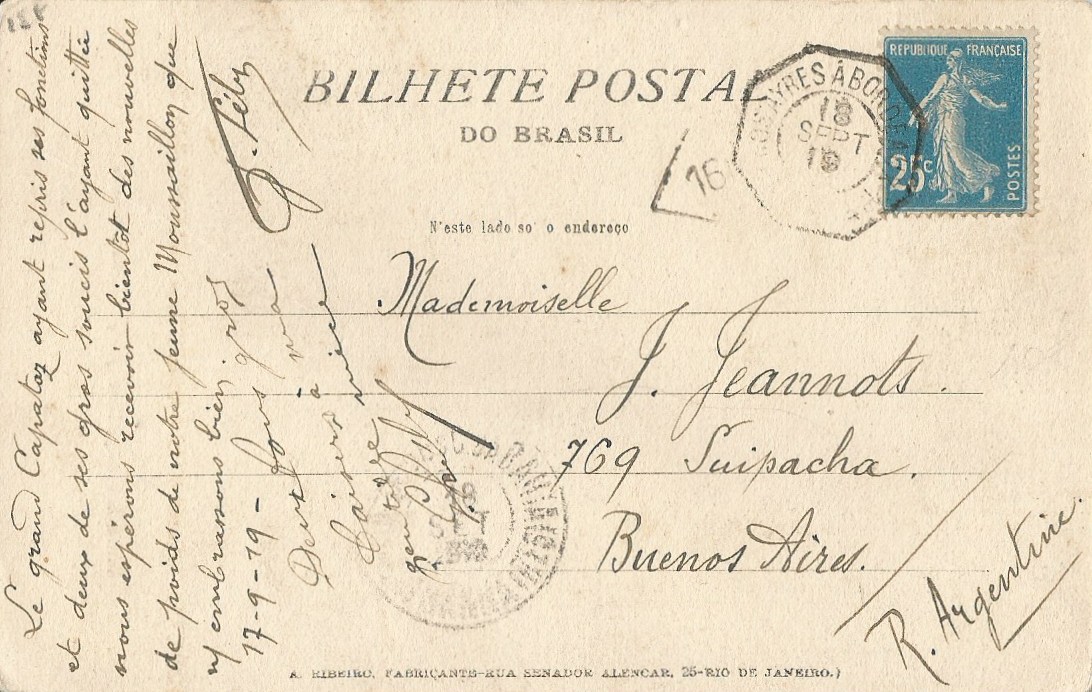 BILHETE POSTAL
DO BRASIL
N'este lado so' o endereço
REPUBLIQUE FRANÇAISE
25c
POSTES
AYRES À BORDEAUX
18
SEPT
19
16
Mademoiselle
J. Jeannots.
769 Suipacha.
Buenos Aires.
R. Argentine.
Le grand Capataz ayant repris ses fonctions
et deux de ses gros soucis l'ayant quittée
nous espérons recevoir bientot des nouvelles
de poids de notre jeune Moussaillon que
n/ embrassons bien gros
17-9-19 -
J. Fély
Deux
Baisers à
A. RIBEIRO, FABRICANTE-RUA SENADOR ALENCAR, 25-RIO DE JANEIRO.)